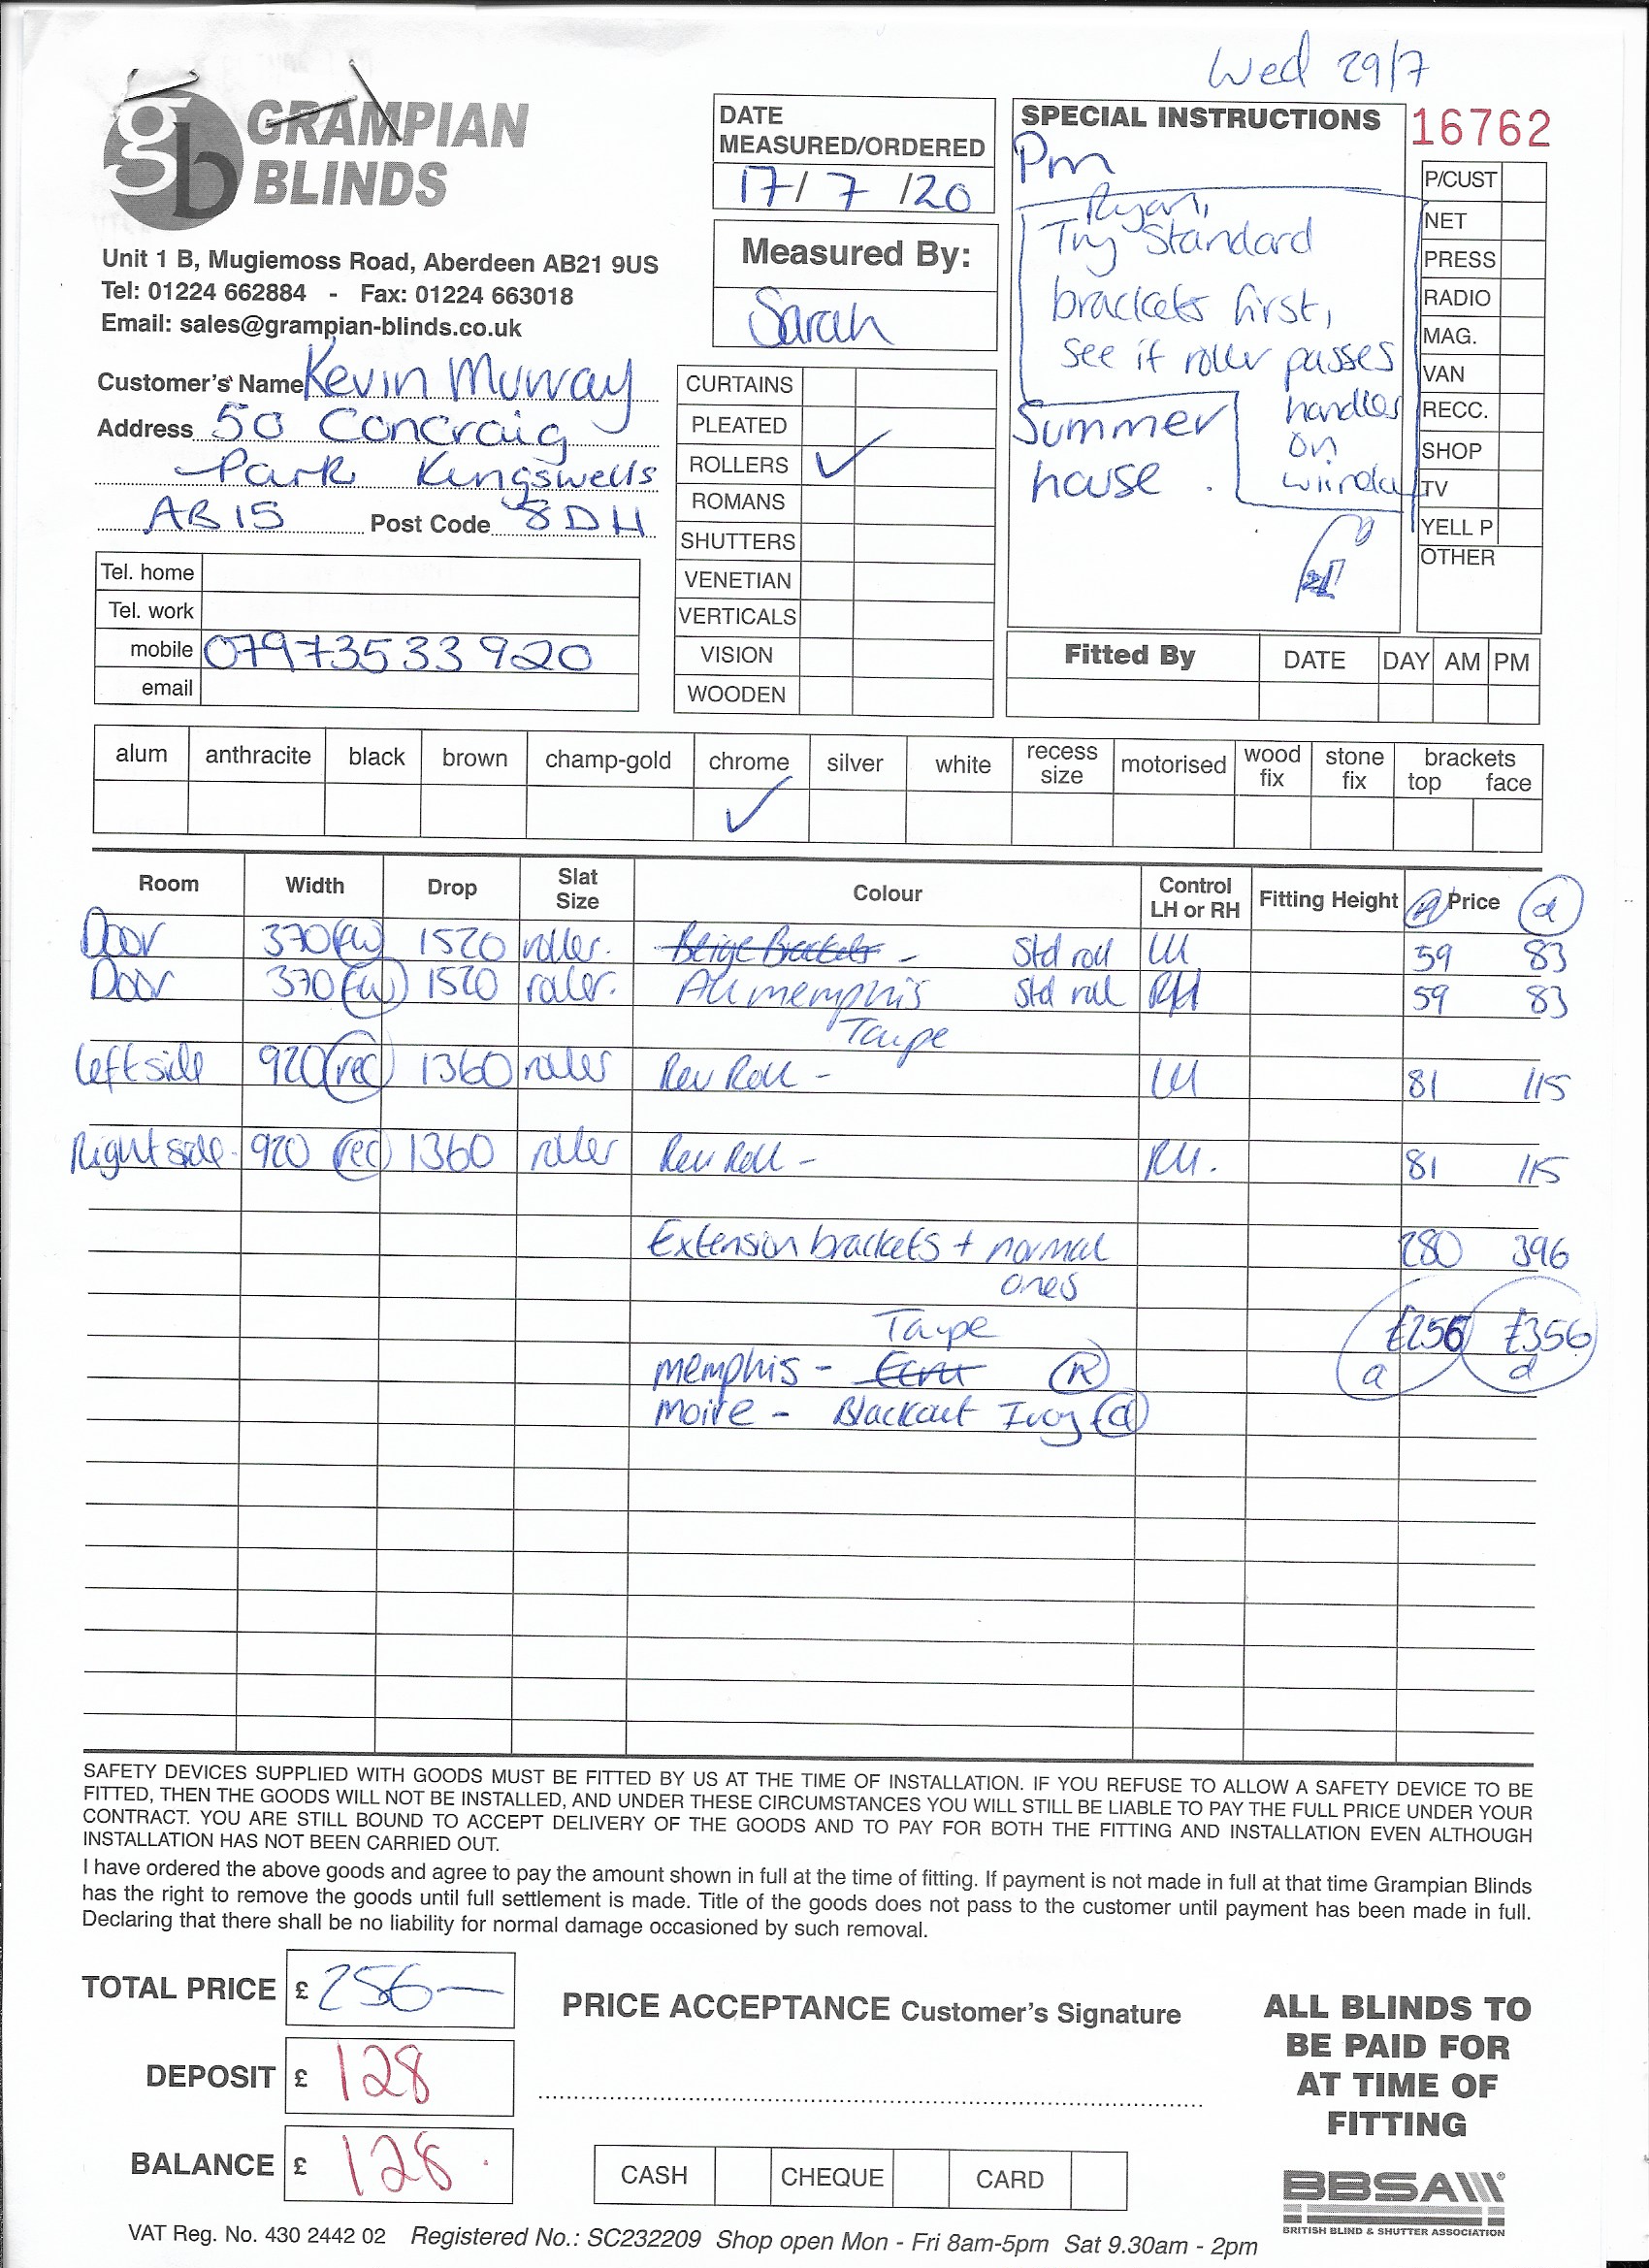 Wed 29/7
GRAMPIAN
BLINDS
Unit 1 B, Mugiemoss Road, Aberdeen AB21 9US
Tel: 01224 662884 - Fax: 01224 663018
Email: sales@grampian-blinds.co.uk
DATE
MEASURED/ORDERED
17/7/20
Measured By:
Sarah
SPECIAL INSTRUCTIONS
Pm
Ryan,
Try Standard
brackets first,
see if roller passes
handles
on
Summer
house.
16762
P/CUST
NET
PRESS
RADIO
MAG.
VAN
RECC.
SHOP
TV
YELL P
OTHER
Customer's Name Kevin Murray
Address 50 Concraig
Park Kingswells
AB15 Post Code 8DH
Tel. home
Tel. work
mobile 07973533920
email
CURTAINS
PLEATED
ROLLERS ✓
ROMANS
SHUTTERS
VENETIAN
VERTICALS
VISION
WOODEN
Fitted By DATE DAY AM PM
alum anthracite black brown champ-gold chrome silver white recess size motorised wood fix stone fix brackets top face
✓
Room Width Drop Slat Size Colour Control LH or RH Fitting Height a Price d
Door 370 (fw) 1520 roller. Beige Brackets - Std roll LH 59 83
Door 370 (fw) 1520 roller. All memphis Std roll RH 59 83
Taupe
Left side 920 (rec) 1360 roller Rev Roll - LH 81 115
Right side 920 (rec) 1360 roller Rev Roll - RH. 81 115
Extension brackets + normal 280 396
ones
Taupe £256 £356
memphis - Ecru a d
moire - Blackout Ivory (d)
SAFETY DEVICES SUPPLIED WITH GOODS MUST BE FITTED BY US AT THE TIME OF INSTALLATION. IF YOU REFUSE TO ALLOW A SAFETY DEVICE TO BE
FITTED, THEN THE GOODS WILL NOT BE INSTALLED, AND UNDER THESE CIRCUMSTANCES YOU WILL STILL BE LIABLE TO PAY THE FULL PRICE UNDER YOUR
CONTRACT. YOU ARE STILL BOUND TO ACCEPT DELIVERY OF THE GOODS AND TO PAY FOR BOTH THE FITTING AND INSTALLATION EVEN ALTHOUGH
INSTALLATION HAS NOT BEEN CARRIED OUT.
I have ordered the above goods and agree to pay the amount shown in full at the time of fitting. If payment is not made in full at that time Grampian Blinds
has the right to remove the goods until full settlement is made. Title of the goods does not pass to the customer until payment has been made in full.
Declaring that there shall be no liability for normal damage occasioned by such removal.
TOTAL PRICE £ 256—
DEPOSIT £ 128
BALANCE £ 128.
PRICE ACCEPTANCE Customer's Signature
CASH CHEQUE CARD
ALL BLINDS TO
BE PAID FOR
AT TIME OF
FITTING
BBSA
BRITISH BLIND & SHUTTER ASSOCIATION
VAT Reg. No. 430 2442 02 Registered No.: SC232209 Shop open Mon - Fri 8am-5pm Sat 9.30am - 2pm